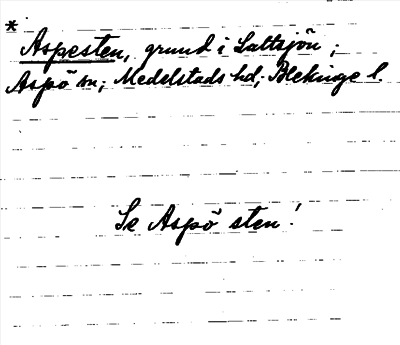 * Aspesten, grund i Saltsjön;
Aspö sn; Medelstads hd; Blekinge l.
Se Aspö sten!